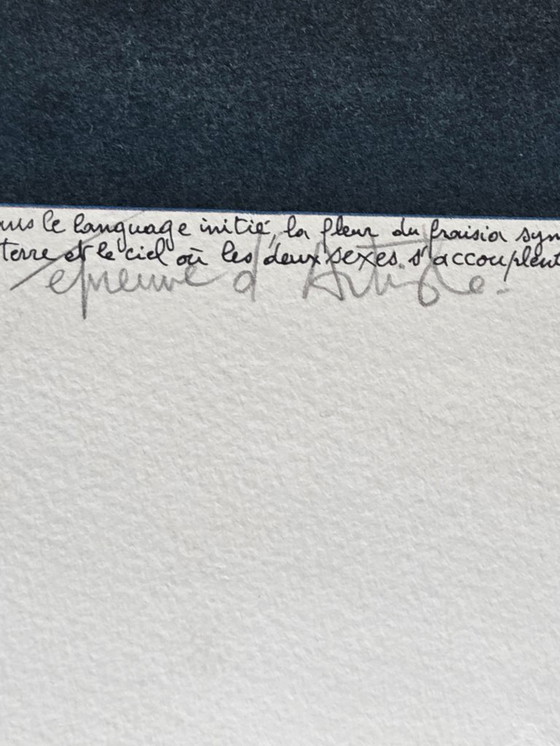 le language initié, la fleur du fraisia sym
terre et le ciel où les deux sexes s'accouplent
épreuve d'Artiste.